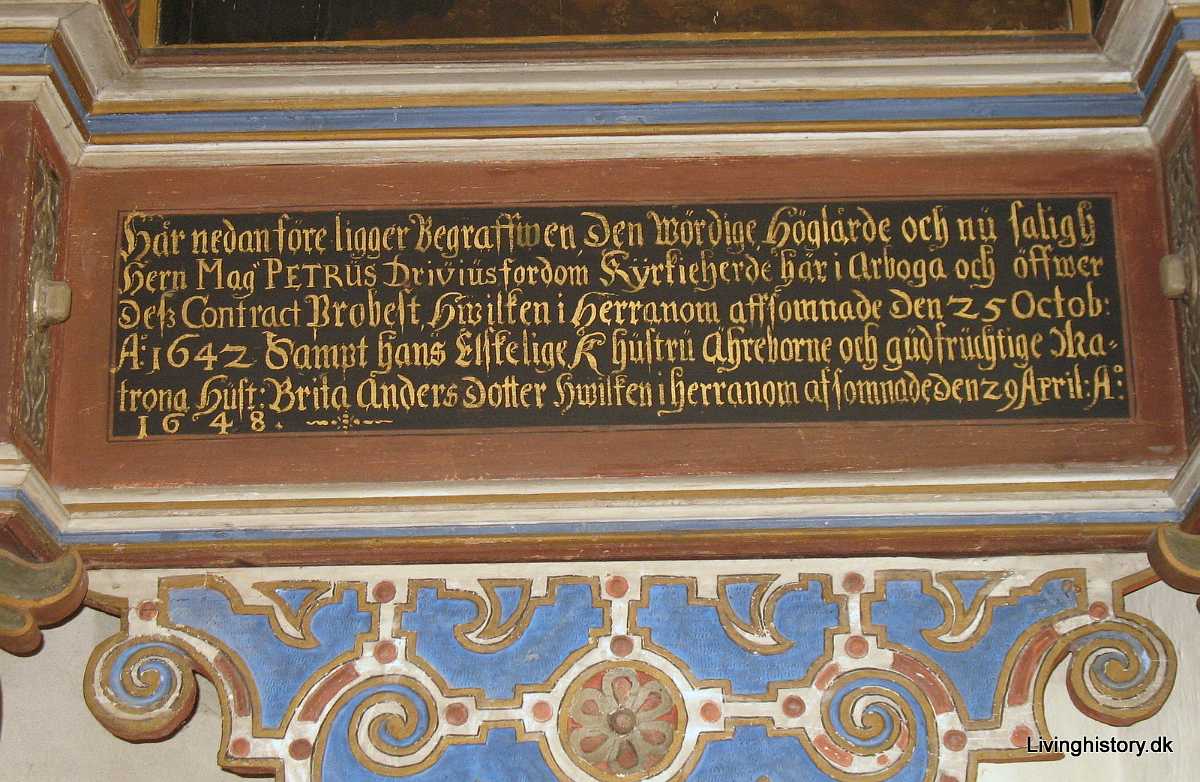 Här nedanföre ligger Begraffwen Den Wördige Höglärde och nü saligh
Hern Mag: PETRÜS Driviüs fordom Kÿrkieherde här i Arboga och öffwer
Desz Contract Probest, Hwilken i Herranom affsomnade Den 25 Octob:
A:o 1642 Sampt hans Elskelige K hüstrü Ähreborne och güdfrüchtige Ma-
trona Hüst: Brita Anders Dotter Hwilken i herranom afsomnade Den 29 April: A:o
1648.
Livinghistory.dk